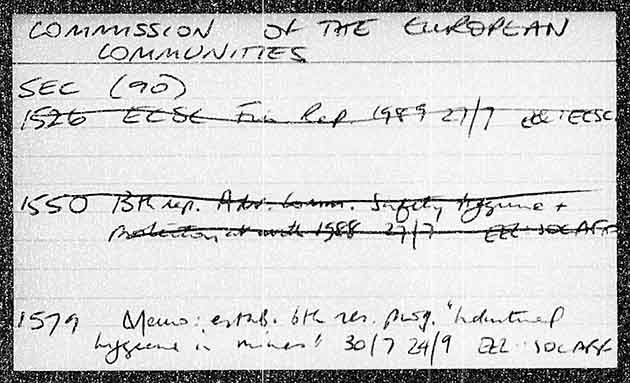 COMMISSION OF THE EUROPEAN
COMMUNITIES
SEC (90)
1526 ECSC Fin Rep. 1989 27/7 EEC:ECSC
1550 13th rep. Adv. Comm. Safety, Hygiene +
Protection at work 1988 27/7 EEC:SOCAFF
1579 Memo: estab. 6th res. prog. "Industrial
hygiene in mines" 30/7 24/9 SOCAFF